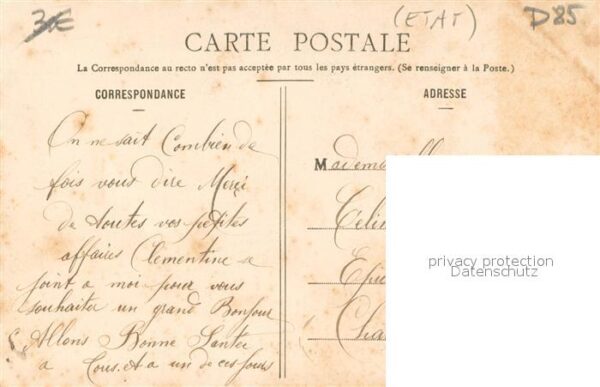 3€
(ETAT)
D85
CARTE POSTALE
La Correspondance au recto n'est pas acceptée par tous les pays étrangers. (Se renseigner à la Poste.)
CORRESPONDANCE
ADRESSE
On ne sait Combien de
fois vous dire Merci
de toutes vos petites
affaires Clementine se
joint a moi pour vous
souhaiter un grand Bonjour
Allons Bonne Santer
a Tous. et a un de ces jours
Madem
Célin
Epic
Cha
privacy protection
Datenschutz